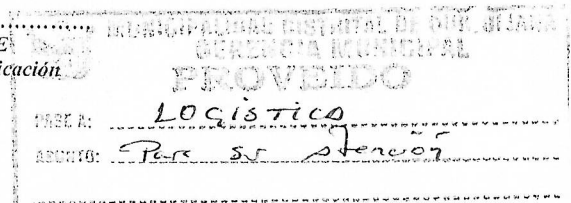 E
icación
MUNICIPALIDAD DISTRITAL DE
GERENCIA MUNICIPAL
PROVEIDO
PASE A: LOGÍSTICA
ASUNTO: Para su atención